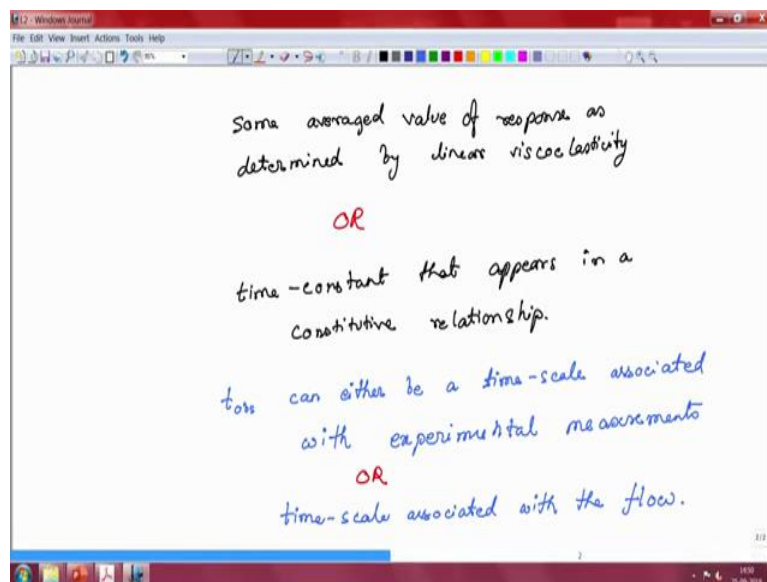 L2 - Windows Journal
File Edit View Insert Actions Tools Help
B I
Some averaged value of response as
determined by linear viscoelasticity
OR
time-constant that appears in a
constitutive relationship.
tobs can either be a time-scale associated
with experimental measurements
OR
time-scale associated with the flow.
2
14:50